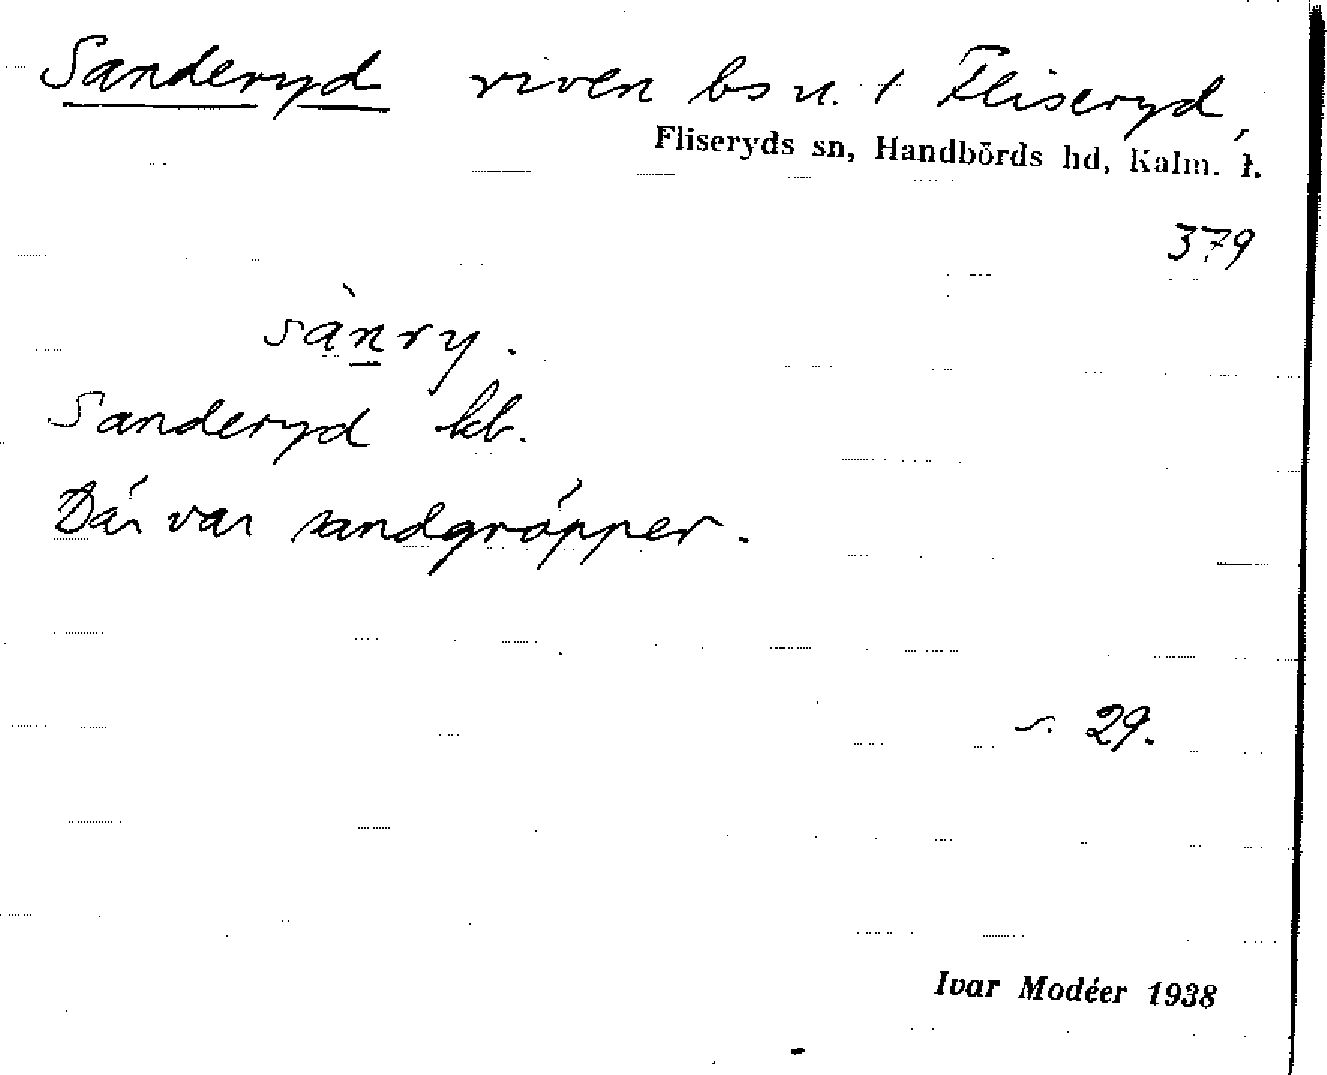 Sanderyd riven bs u. t Fliseryd,
Fliseryds sn, Handbörds hd, Kalm. l.
379
sànry.
Sanderyd kb.
Där var sandgröpper.
s. 29.
Ivar Modéer 1938